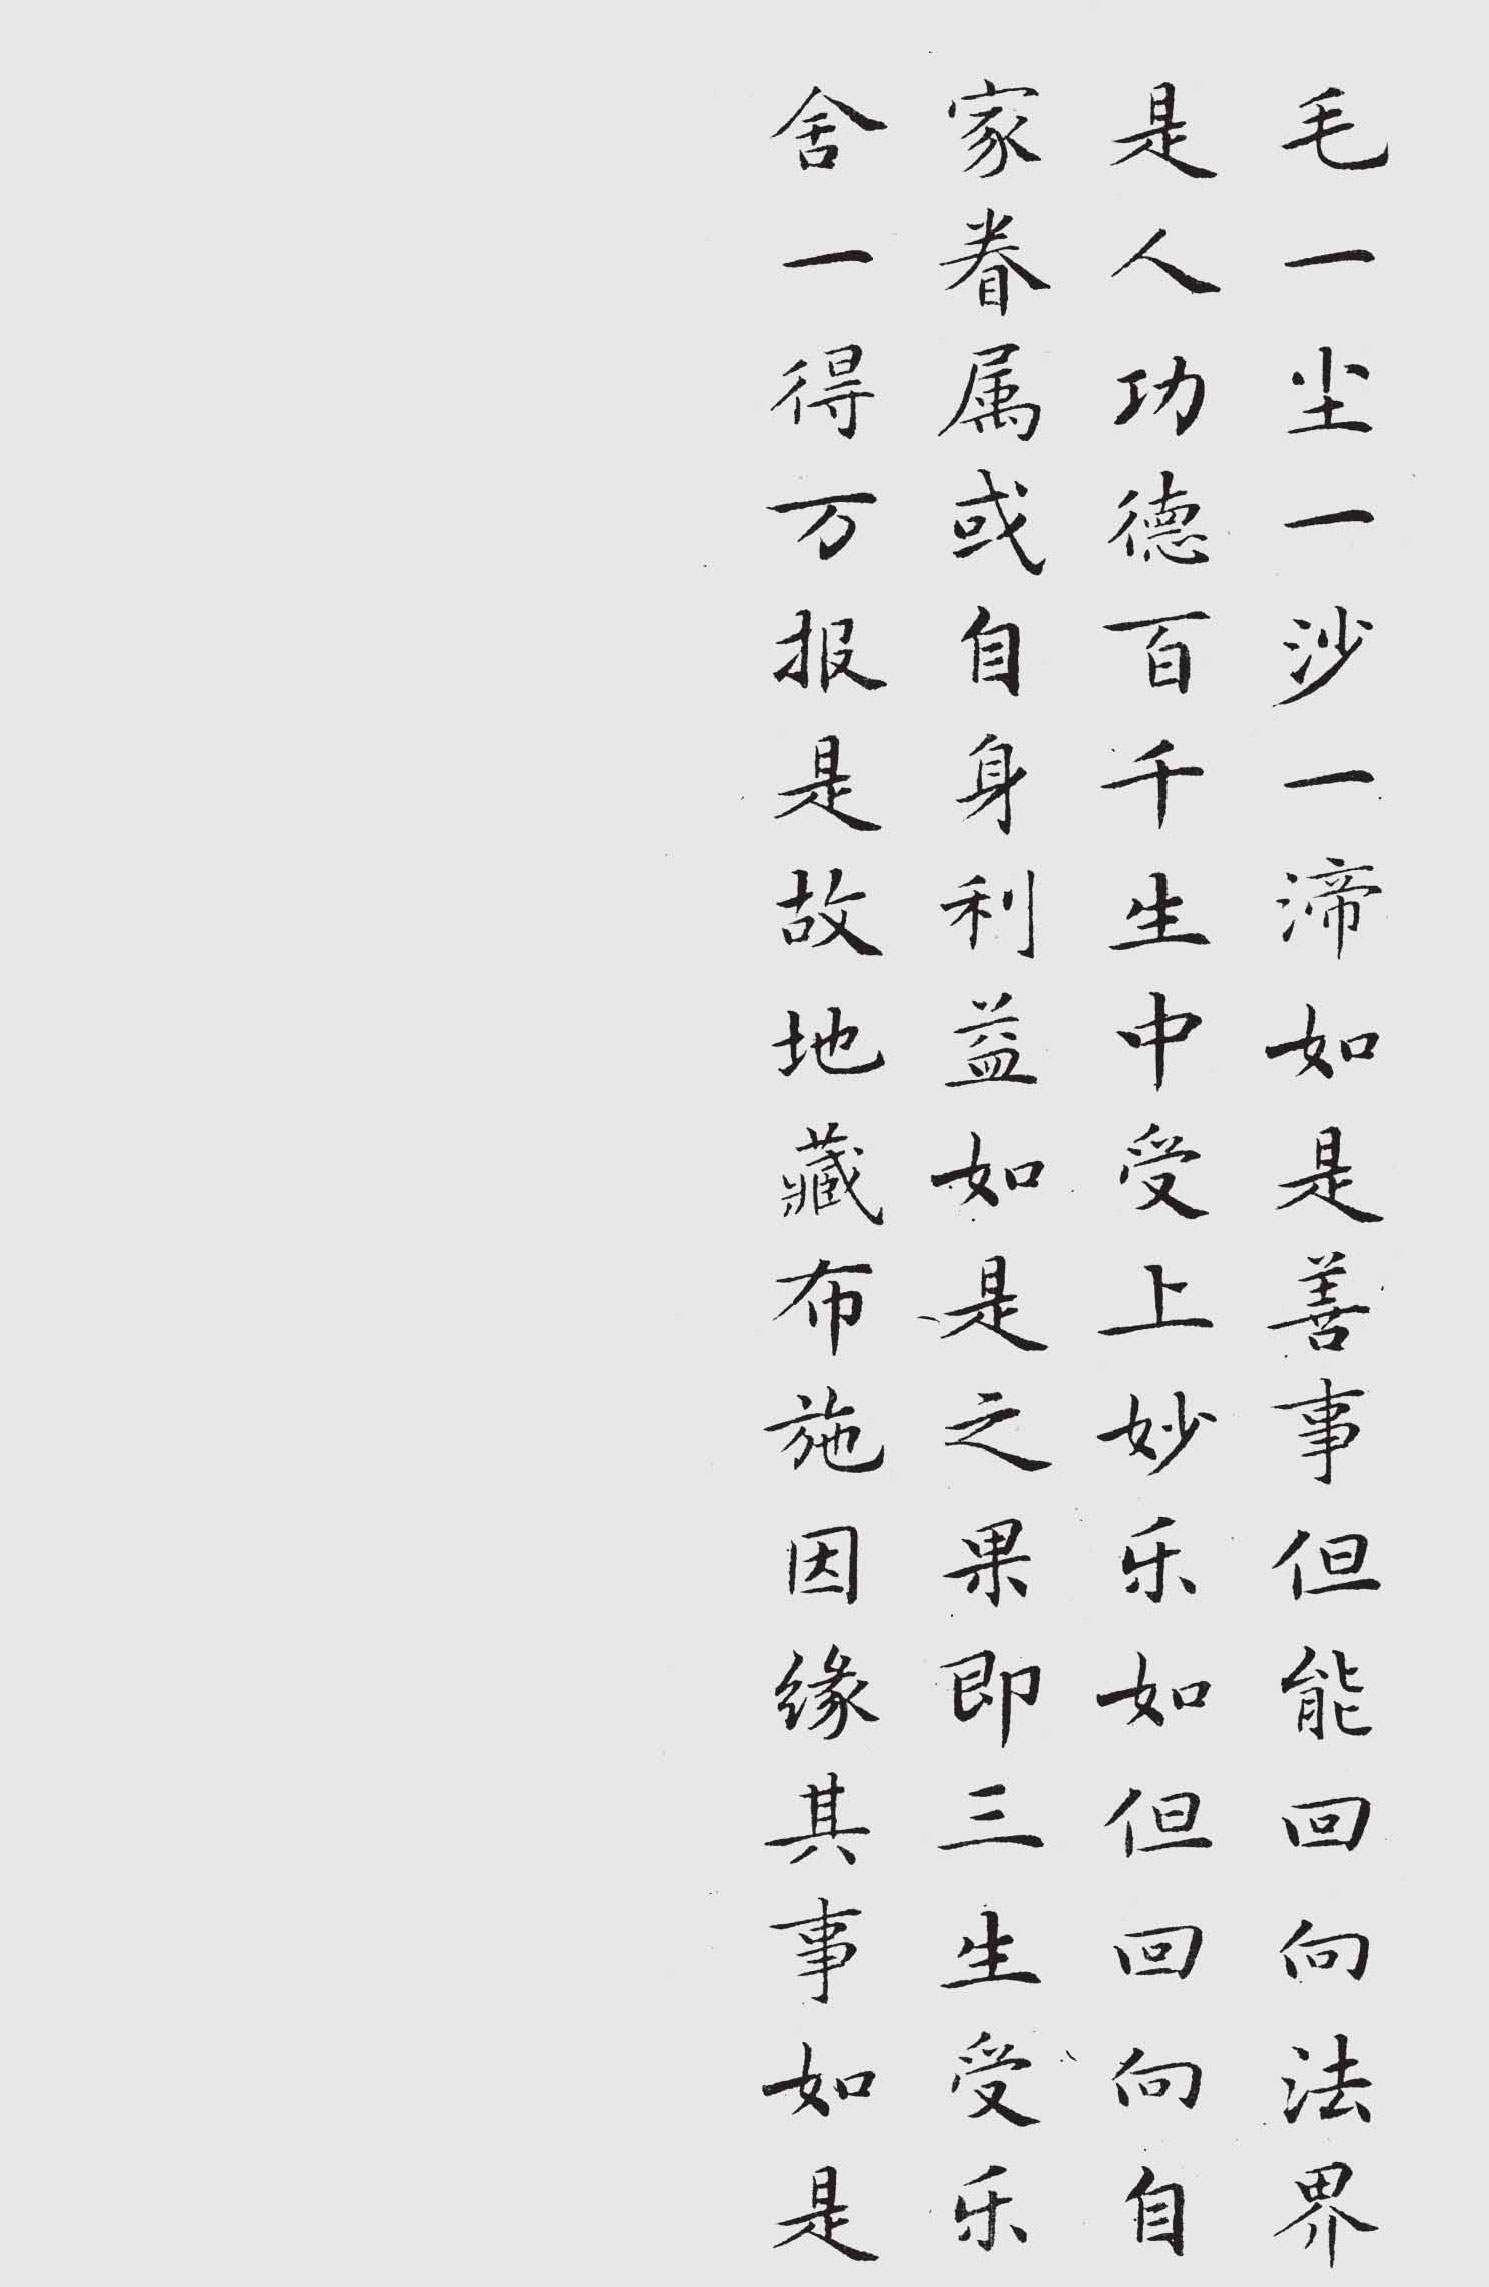 毛一尘一沙一渧如是善事但能回向法界
是人功德百千生中受上妙乐如但回向自
家眷属或自身利益如是之果即三生受乐
舍一得万报是故地藏布施因缘其事如是